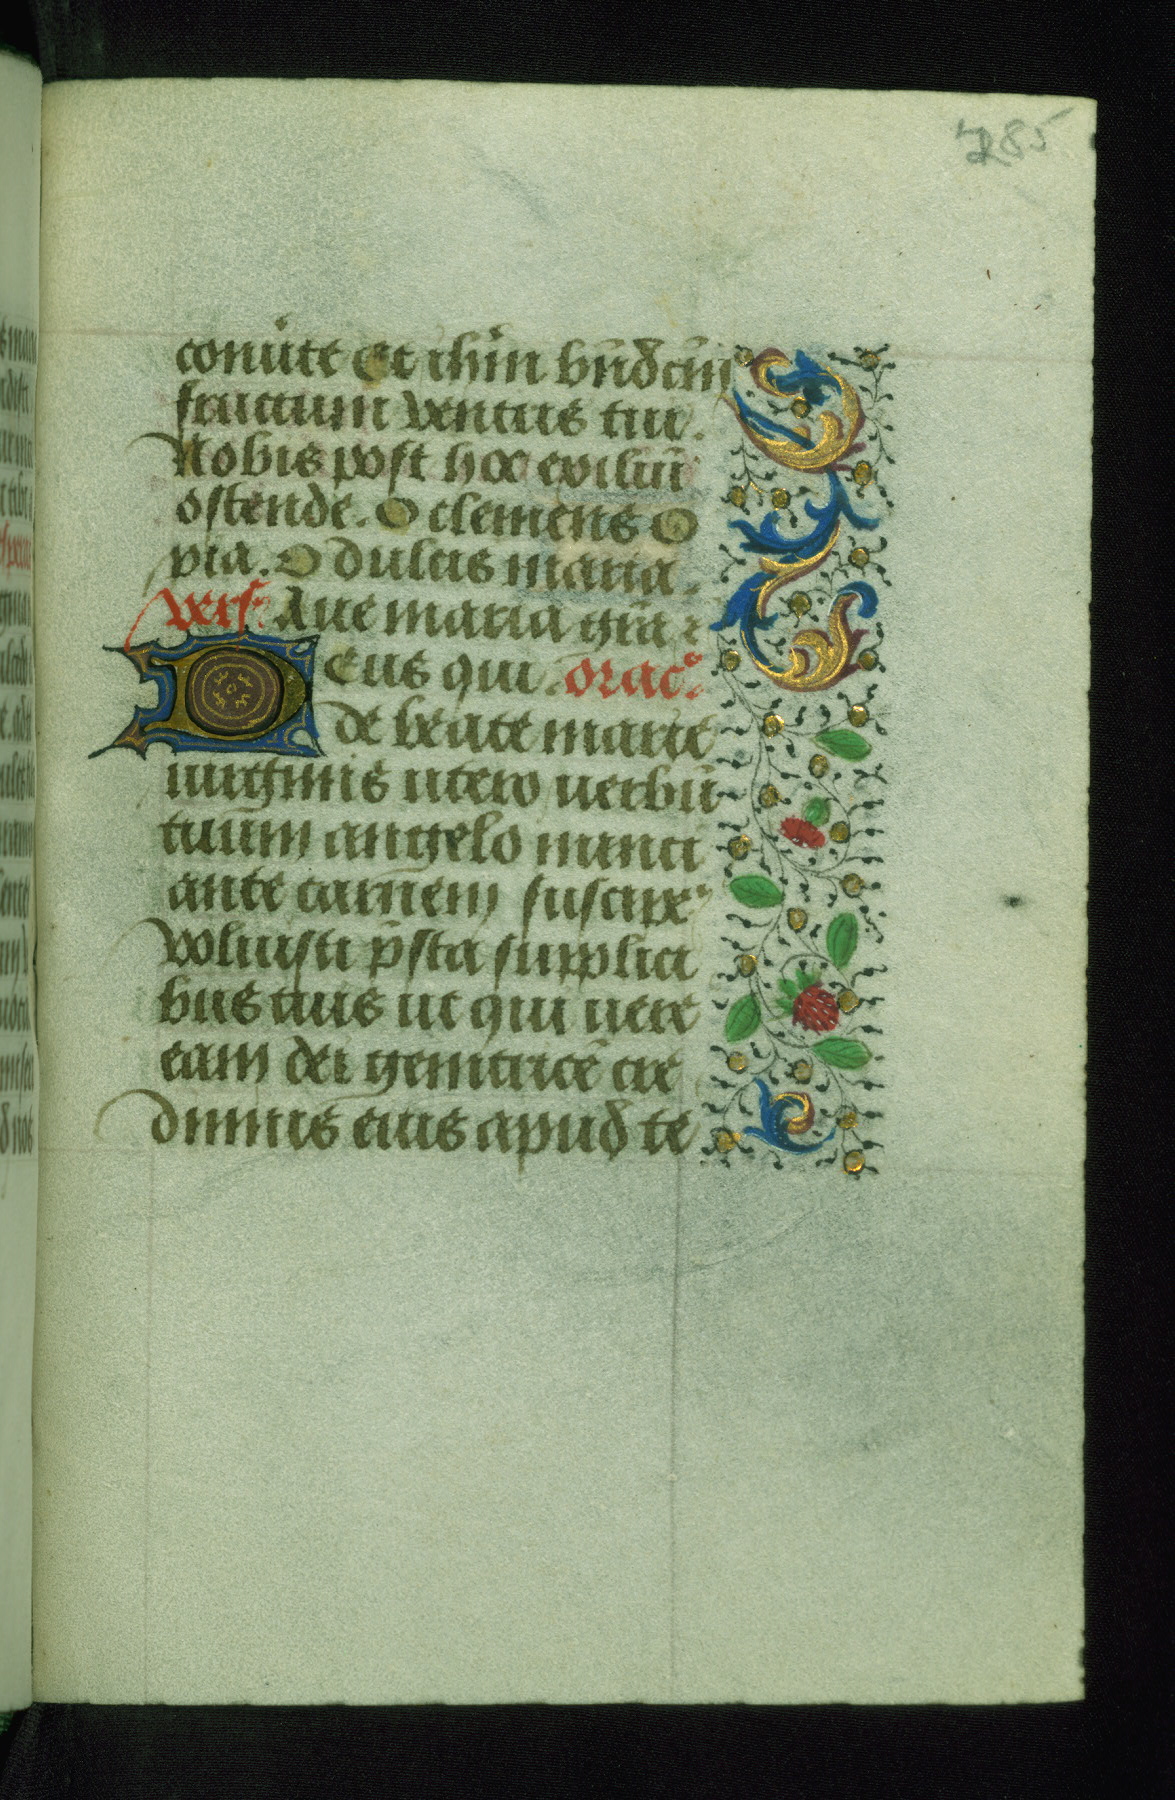 285
conũte Et ihm̃ bñdcũm
fructum ventris tui.
Nobis post hoc exiliũ
ostende. O clemens O
pia. O dulcis maria.
vers. Aue maria gr̃a
Deus qui. orac̃.
de beate marie
uirginis utero uerbũ
tuum angelo nunci
ante carnem suscipe
voluisti p̃sta supplici
bus tuis ut qui uere
eam dei genitricẽ cre
dimus eius apud te